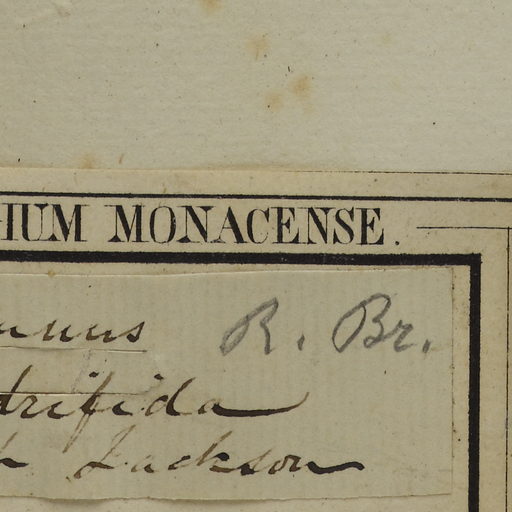 IUM MONACENSE.
R. Br.
trifida
Jackson